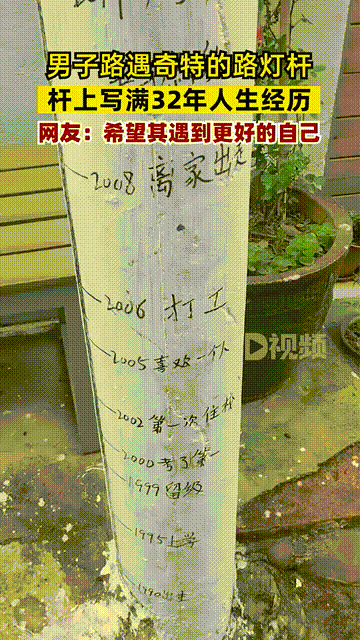 男子路遇奇特的路灯杆
杆上写满32年人生经历
网友：希望其遇到更好的自己
2008 离家出走
2006 打工
D视频
2005 喜欢一个
2002 第一次住校
2000 考了第一
1999 留级
1995 上学
1990 出生